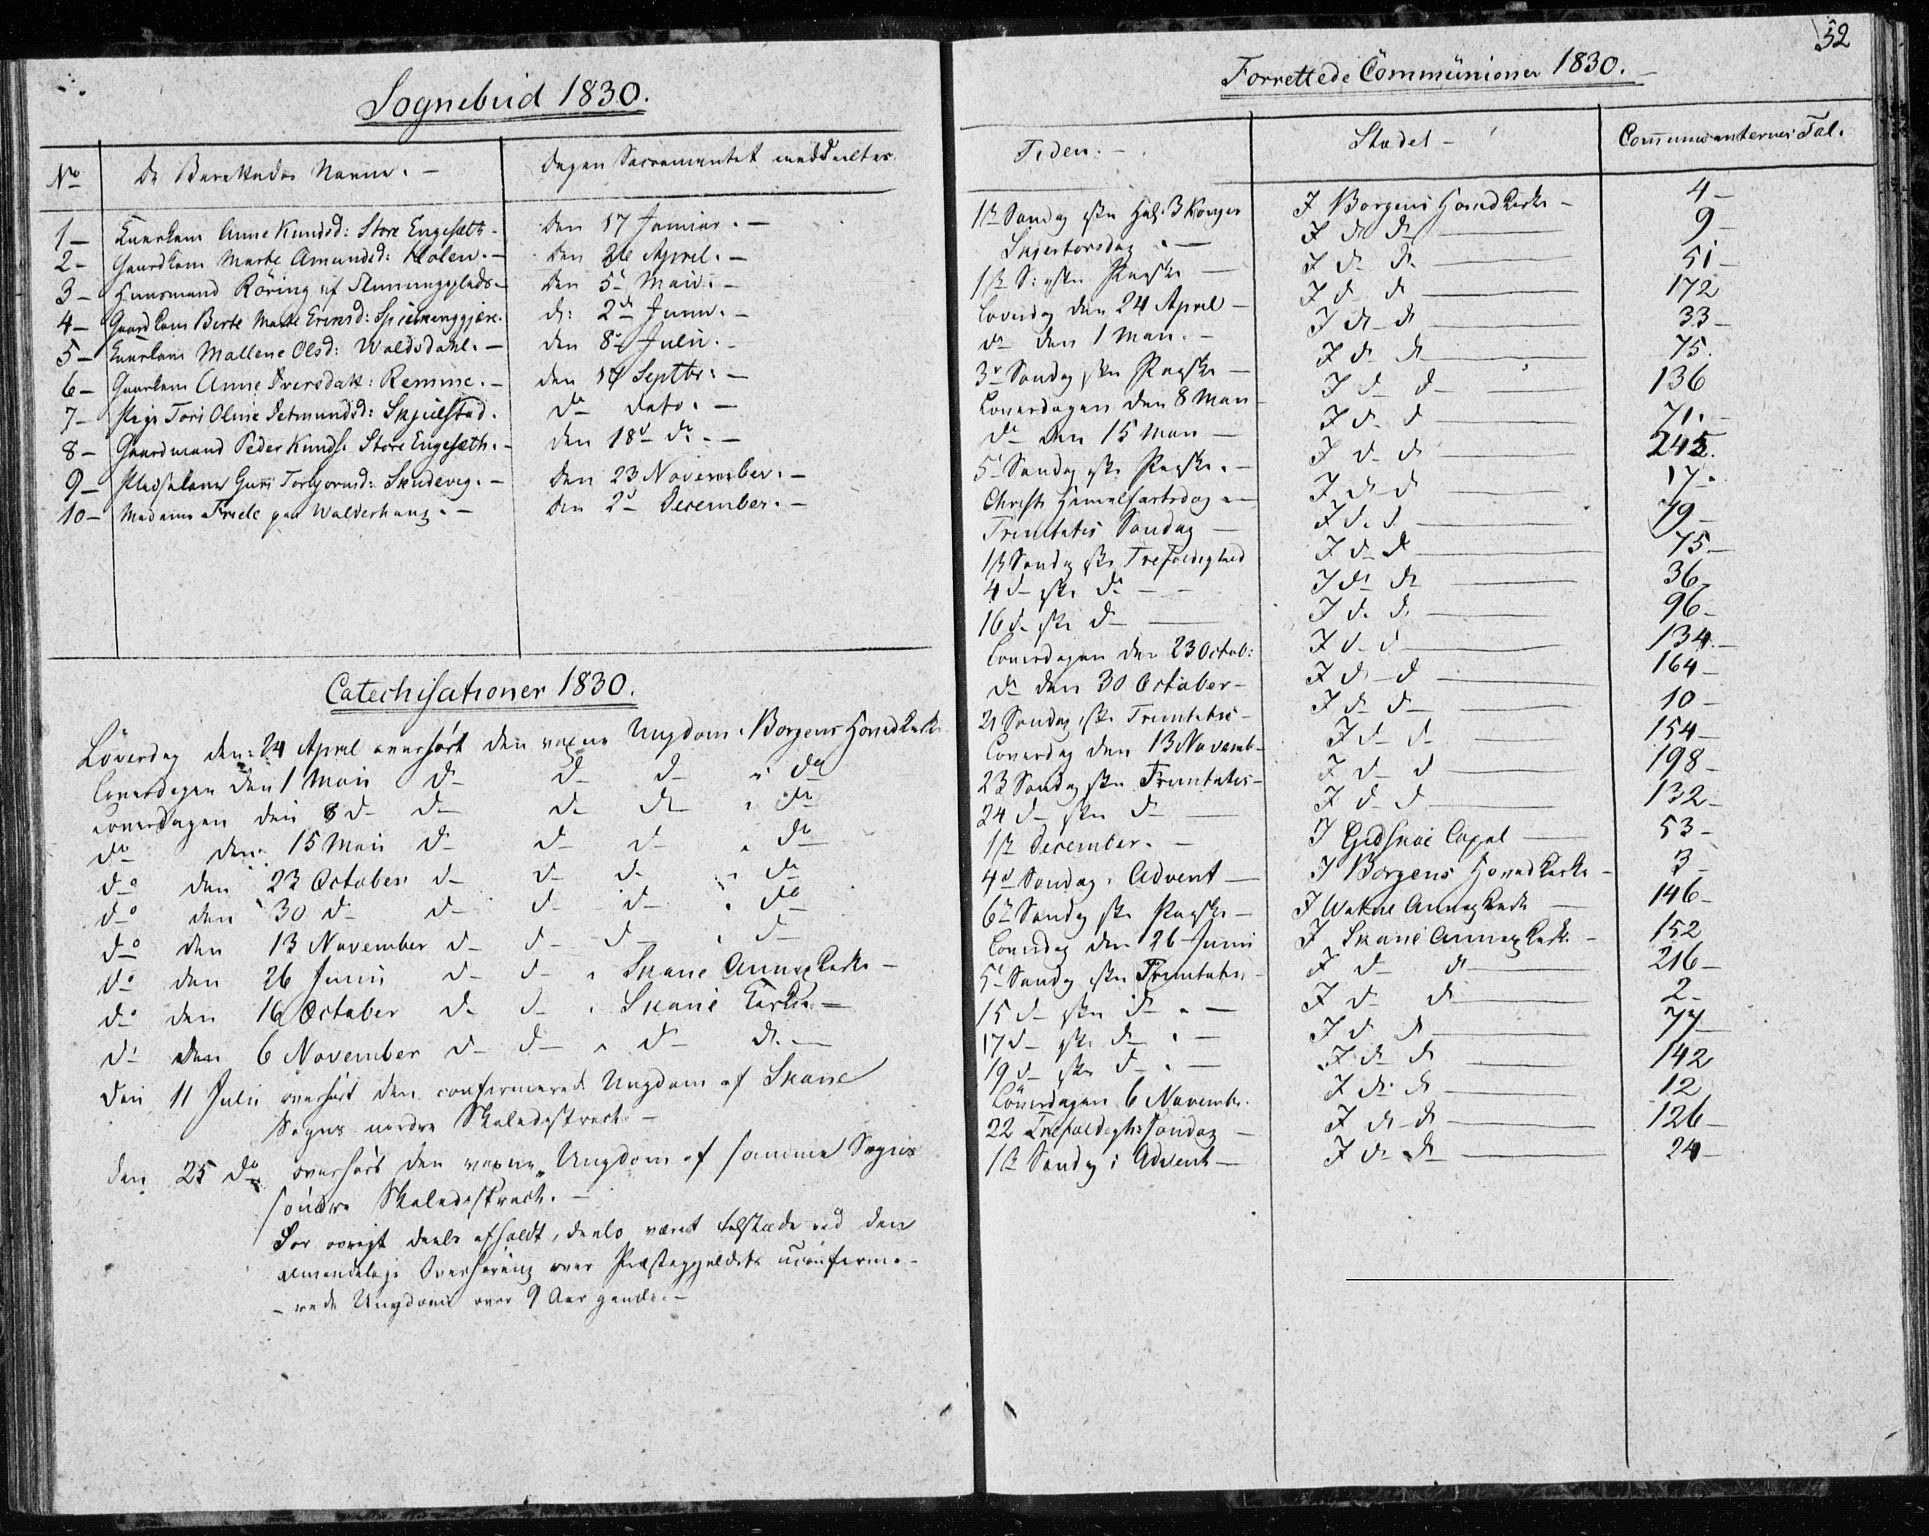 Sognebud 1830.
No De Berettedes Navne. Dagen Sacramentet meddeeltes
1 Anne Knudsd: Store Engesæth Den 17 Januar.
2 Marte Amundsd: Holen. Den 26 April.
3 Huusmand Röring af Den 5 Maii.
4 Berte Marte d: 2d Junii.
5 Mallene Olsd: Waldsdahl. den 8 Julii.
6 Anne Iversdatt: Remme. den 17 Septbr:
7 Pige Tori Oline d: Skjelstad. do dato.
8 Gaardmand Peder Knuds. Store Engesæth. den 18 do
9 Guri Torgjørnsd: Skudevig. den 23 November.
10 Madame Friele paa Walderhaug. den 2 December.
Catechisationer 1830.
Löverdag den 24 April overhört den voxne Ungdom i Borgens Hovedkirke
Löverdagen den 1 Maii do do do i do
Löverdagen den 8 do do do do i do
do den 15 Maii do do do i do
do den 23 October do do do i do
do den 30 do do do do i do
do den 13 November do do do i do
do den 26 Junii do do i Skoue Annexkirke
do den 16 October do do i Skoue Kirke
do den 6 November do do i do do
Den 11 Julii overhört den confirmerede Ungdom af Skoue
Sogns nordre Skoledistrict.
Den 25 do overhört den voxne Ungdom af samme Sogns
söndre Skoledistrict.
For övrigt deels afholdt, deels været tilstæde ved den
almindelige Overhöring over Præstegjeldets uconfirme-
-rede Ungdom over 9 Aar gamle.
52
Forrettede Communioner 1830.
Tiden. Stedet Communicanternes Tal.
1ste Søndag efter Hel. 3 Konger I Borgens Hovedkirke 4
Skjertorsdag I do do 9
1ste S: efter Paaske I do do 51
Löverdag den 24 April I do do 172
do den 1 Maii. I do do 33
3die Søndag efter Paaske I do do 75.
Löverdagen den 8 Maii I do do 136
do den 15 Maii I do do 71.
5 Søndag efter Paaske. I do do 245.
Christi Himmelfartsdag I do do 17.
Trinitatis Søndag I do do 19
1ste Søndag efter Trefoldighed I do do 75.
4 do efter do I do do 36
16 do efter do I do do 96
Löverdagen den 23 Octob: I do do 134.
do den 30 October I do do 164
21 Søndag efter Trinitatis I do do 10
Löverdag den 13 Novemb. I do do 154
23 Søndag efter Trinitatis I do do 198
24 do efter do I do do 132
1ste December. I Godsköe Capel 53
4de Søndag i Advent I Borgens Hovedkirke 3
6te Søndag efter Paaske I Annexkirke 146
Löverdag den 26 Junii I Skoue Annexkirke. 152
5 Søndag efter Trinitatis I do do 216
15 do efter do I do do 2
17 do efter do I do do 77
19 do efter do I do do 142
Löverdagen 6 Novembr. I do do 12
22 Trefoldigheds Søndag I do do 126
1ste Søndag i Advent I do do 24